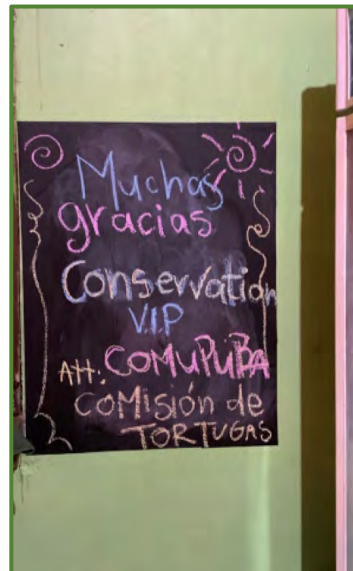 Muchas
gracias
Conservation
V.I.P
Att: COMUPUBA
COMISIÓN de
TORTUGAS